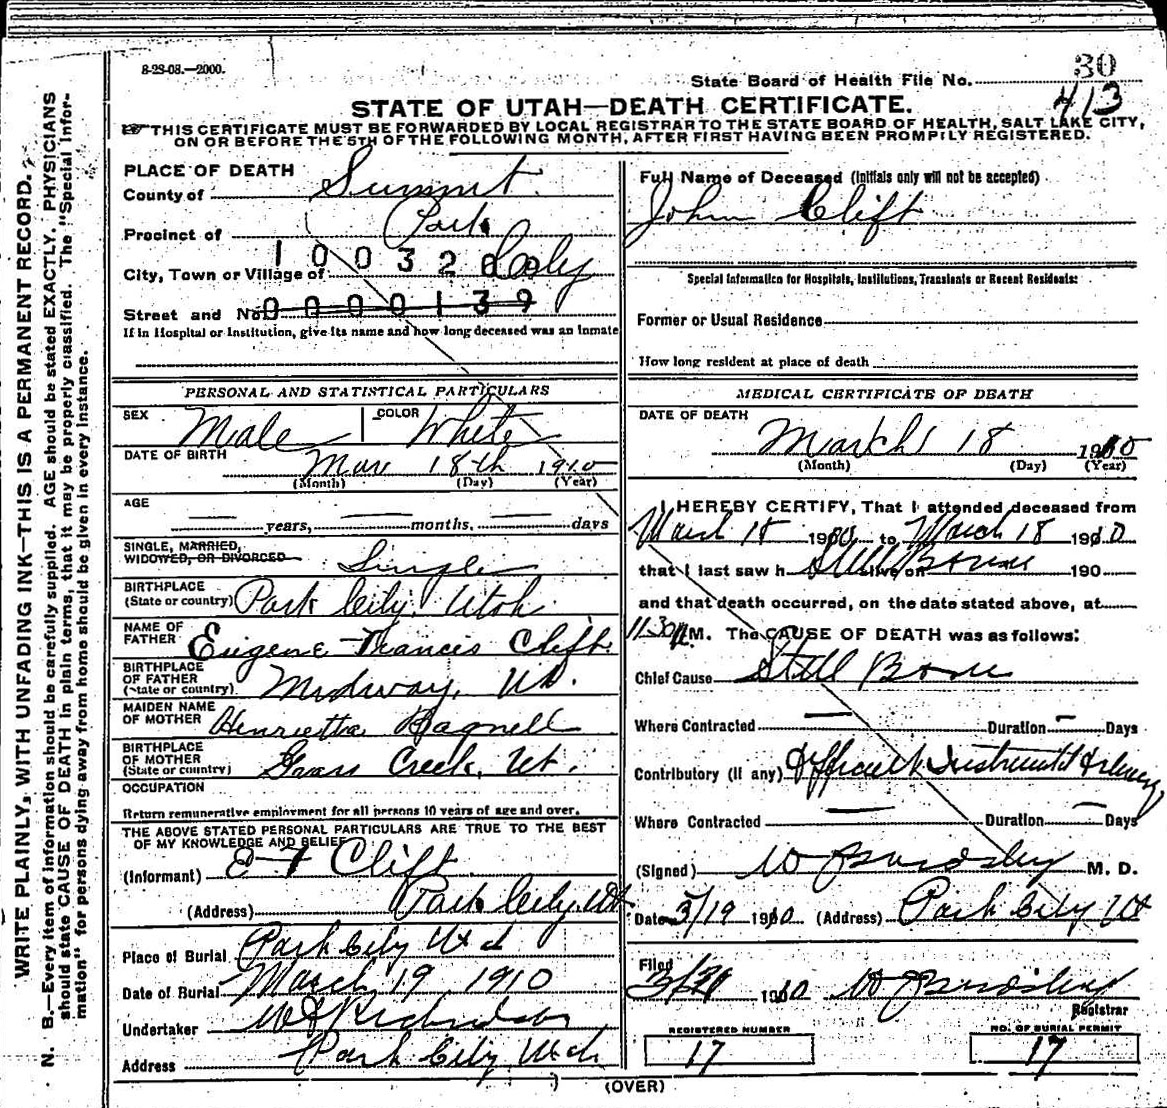 8-23-08.—2000.
State Board of Health File No. 30
413
STATE OF UTAH—DEATH CERTIFICATE.
THIS CERTIFICATE MUST BE FORWARDED BY LOCAL REGISTRAR TO THE STATE BOARD OF HEALTH, SALT LAKE CITY,
ON OR BEFORE THE 5TH OF THE FOLLOWING MONTH, AFTER FIRST HAVING BEEN PROMPILY REGISTERED.
WRITE PLAINLY, WITH UNFADING INK—THIS IS A PERMANENT RECORD.
N. B.—Every item of information should be carefully supplied. AGE should be stated EXACTLY. PHYSICIANS
should state CAUSE OF DEATH in plain terms, that it may be properly classified. The "Special Infor-
mation" for persons dying away from home should be given in every instance.
PLACE OF DEATH
County of Summit
Precinct of Park
City, Town or Village of
1 0 0 3 2
Street and No. 0 0 0 0 1 3 9
If in Hospital or Institution, give its name and how long deceased was an inmate
PERSONAL AND STATISTICAL PARTICULARS
SEX Male COLOR White
DATE OF BIRTH Mar 18th 1910
(Month) (Day) (Year)
AGE
years, months, days
SINGLE, MARRIED,
WIDOWED, OR DIVORCED Single
BIRTHPLACE
(State or country) Park City, Utah
NAME OF
FATHER Eugene Francis Clift
BIRTHPLACE
OF FATHER
(State or country) Midway, Ut.
MAIDEN NAME
OF MOTHER Henrietta Bagnell
BIRTHPLACE
OF MOTHER
(State or country) Grass Creek, Ut.
OCCUPATION
Return remunerative employment for all persons 10 years of age and over.
THE ABOVE STATED PERSONAL PARTICULARS ARE TRUE TO THE BEST
OF MY KNOWLEDGE AND BELIEF
(Informant) E F Clift
(Address) Park City, Ut
Place of Burial Park City Utah
Date of Burial March 19 1910
Undertaker Richardson
Address Park City, Utah
Full Name of Deceased (Initials only will not be accepted)
John Clift
Special Information for Hospitals, Institutions, Transients or Recent Residents:
Former or Usual Residence
How long resident at place of death
MEDICAL CERTIFICATE OF DEATH
DATE OF DEATH
March 18 1910
(Month) (Day) (Year)
I HEREBY CERTIFY, That I attended deceased from
March 18 1910 to March 18 1910
that I last saw h Still Borne alive on 190
and that death occurred, on the date stated above, at
11.30 P.M. The CAUSE OF DEATH was as follows:
Chief Cause Still Borne
Where Contracted Duration Days
Contributory (if any) Difficult Instrumental
Where Contracted Duration Days
(Signed) M. D.
Date 3/19 1910 (Address) Park City Ut
Filed
1910
Registrar
REGISTERED NUMBER
17
NO. OF BURIAL PERMIT
17
(OVER)